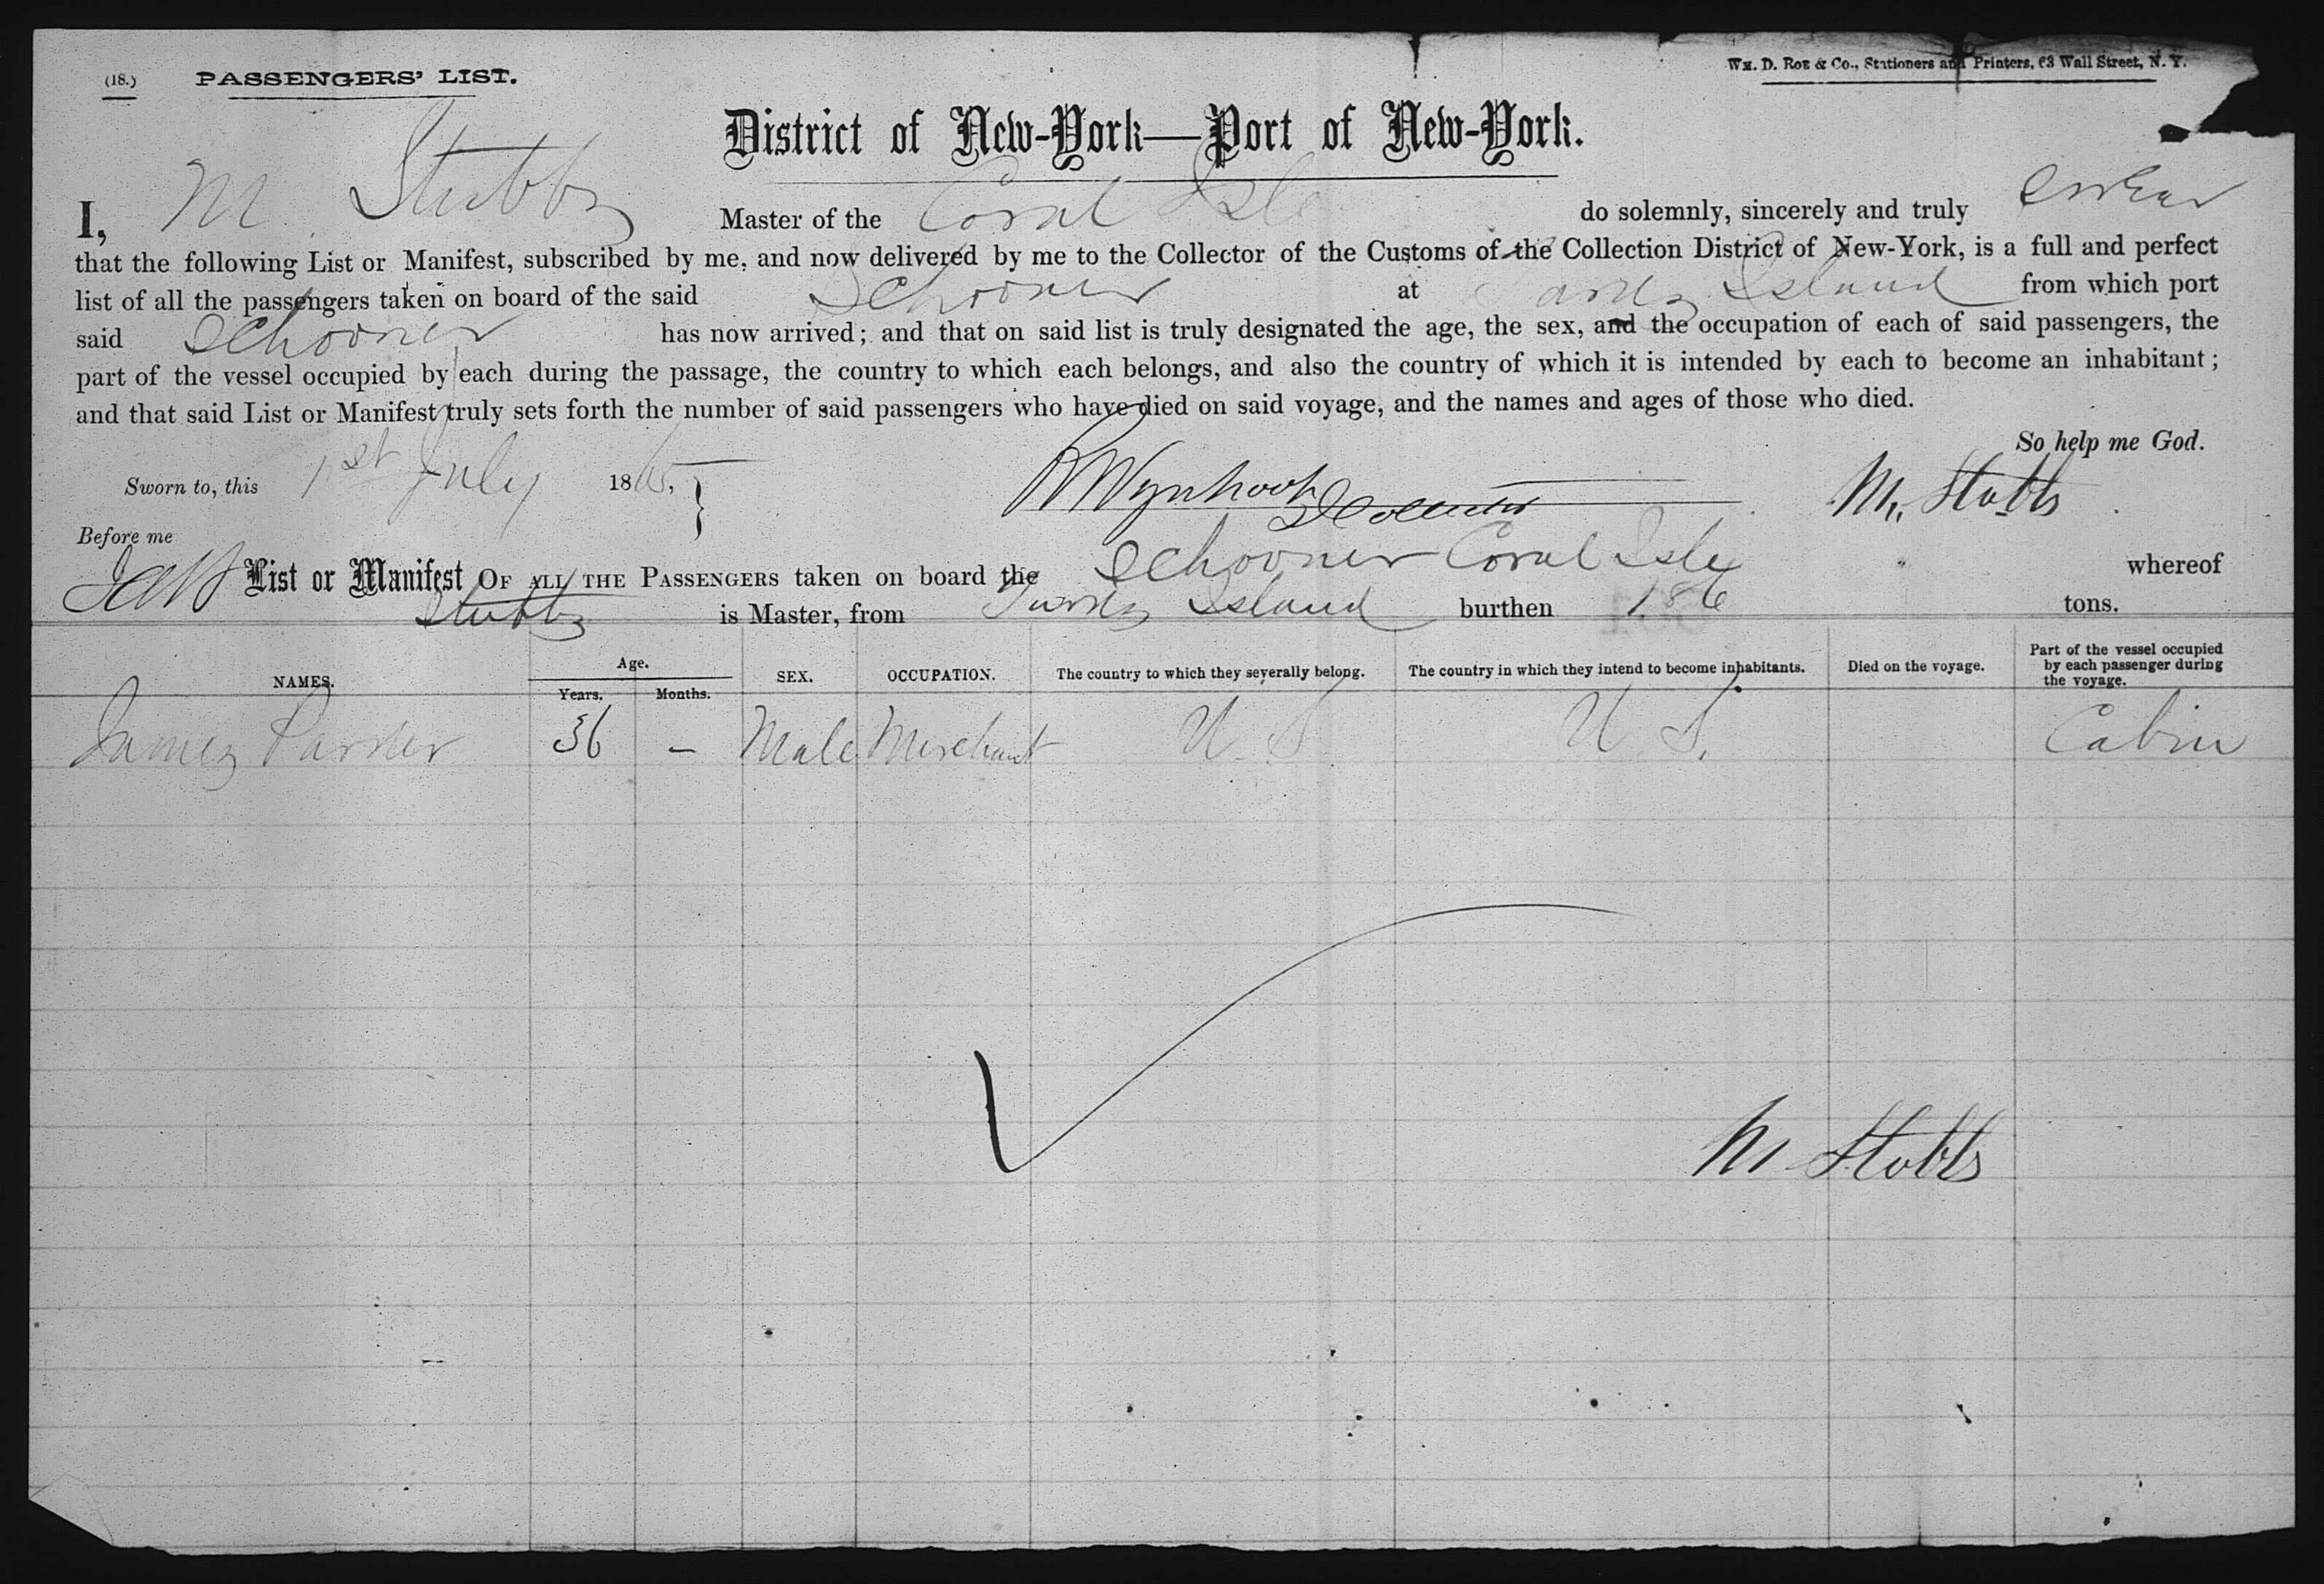 (18.) PASSENGERS' LIST. Wm. D. Roe & Co., Stationers and Printers, 63 Wall Street, N. Y.
District of New-York—Port of New-York.
I, M Stubbs Master of the Coral Isle do solemnly, sincerely and truly swear
that the following List or Manifest, subscribed by me, and now delivered by me to the Collector of the Customs of the Collection District of New-York, is a full and perfect
list of all the passengers taken on board of the said Schooner at Turks Island from which port
said Schooner has now arrived; and that on said list is truly designated the age, the sex, and the occupation of each of said passengers, the
part of the vessel occupied by each during the passage, the country to which each belongs, and also the country of which it is intended by each to become an inhabitant;
and that said List or Manifest truly sets forth the number of said passengers who have died on said voyage, and the names and ages of those who died.
So help me God.
Sworn to, this 1st July 1865, } M. Stubbs
Before me
List or Manifest OF ALL THE PASSENGERS taken on board the Schooner Coral Isle whereof
Stubbs is Master, from Turks Island burthen 186 tons.
NAMES. Age. Years. Months. SEX. OCCUPATION. The country to which they severally belong. The country in which they intend to become inhabitants. Died on the voyage. Part of the vessel occupied by each passenger during the voyage.
James 36 – Male Merchant U. S U. S. Cabin
M Stubbs